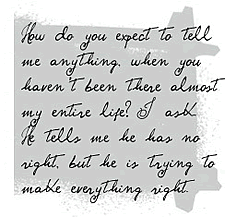 How do you expect to tell
me anything, when you
haven't been there almost
my entire life? I ask.
He tells me he has no
right, but he is trying to
make everything right.